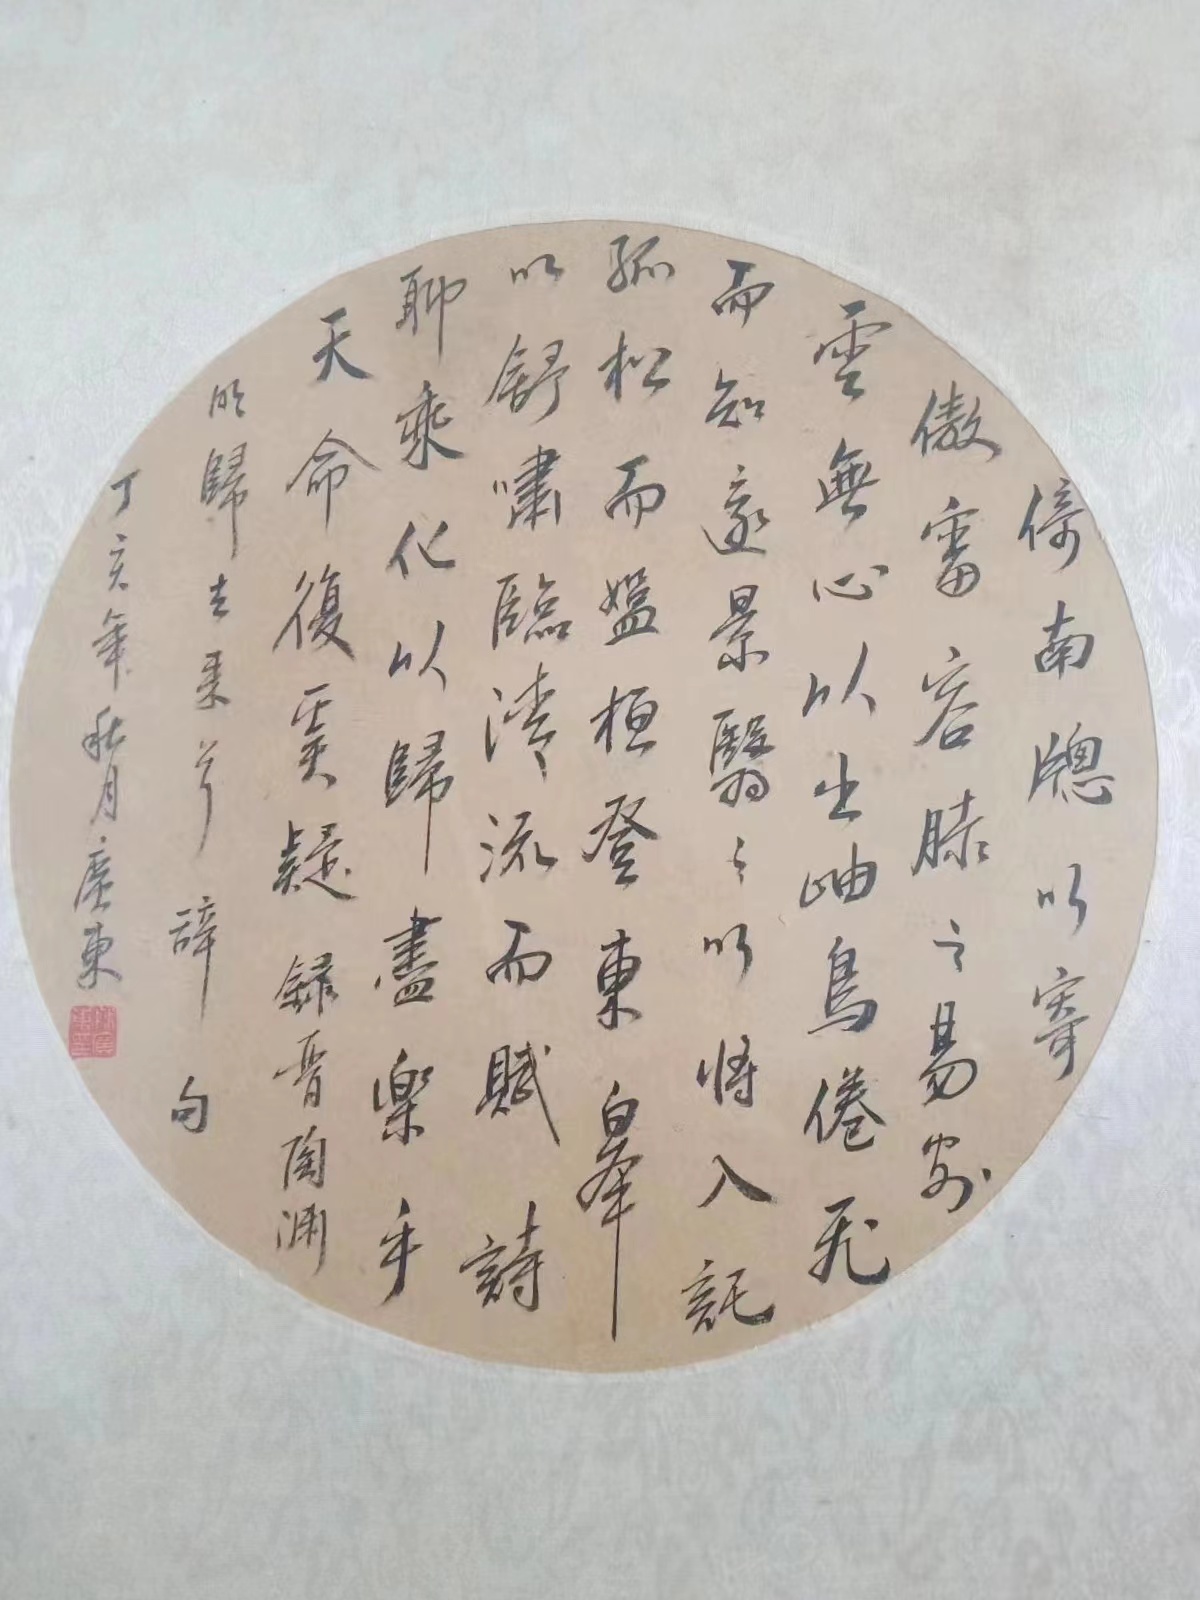 倚南牕以寄
傲審容膝之易安
雲無心以出岫鳥倦飛
而知還景翳々以將入託
孤松而盤桓登東皐
以舒嘯臨清流而賦詩
聊乘化以歸盡樂乎
天命復奚疑 錄晉陶淵
明歸去來兮辭句
丁亥年秋月廣東